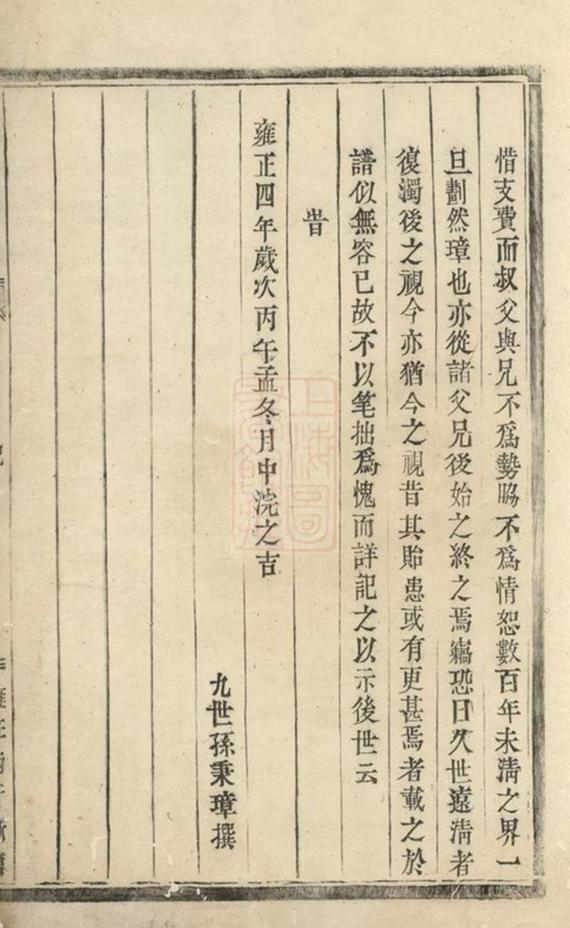 惜支費而叔父與兄不爲勢脇不爲情恕數百年未淸之界一
旦劃然璋也亦從諸父兄後始之終之焉竊恐日久世遠淸者
復濁後之視今亦猶今之視昔其貽患或有更甚焉者載之於
譜似無容已故不以笔拙爲愧而詳記之以示後世云
旹
雍正四年歲次丙午孟冬月中浣之吉
九世孫秉璋撰
上海圖